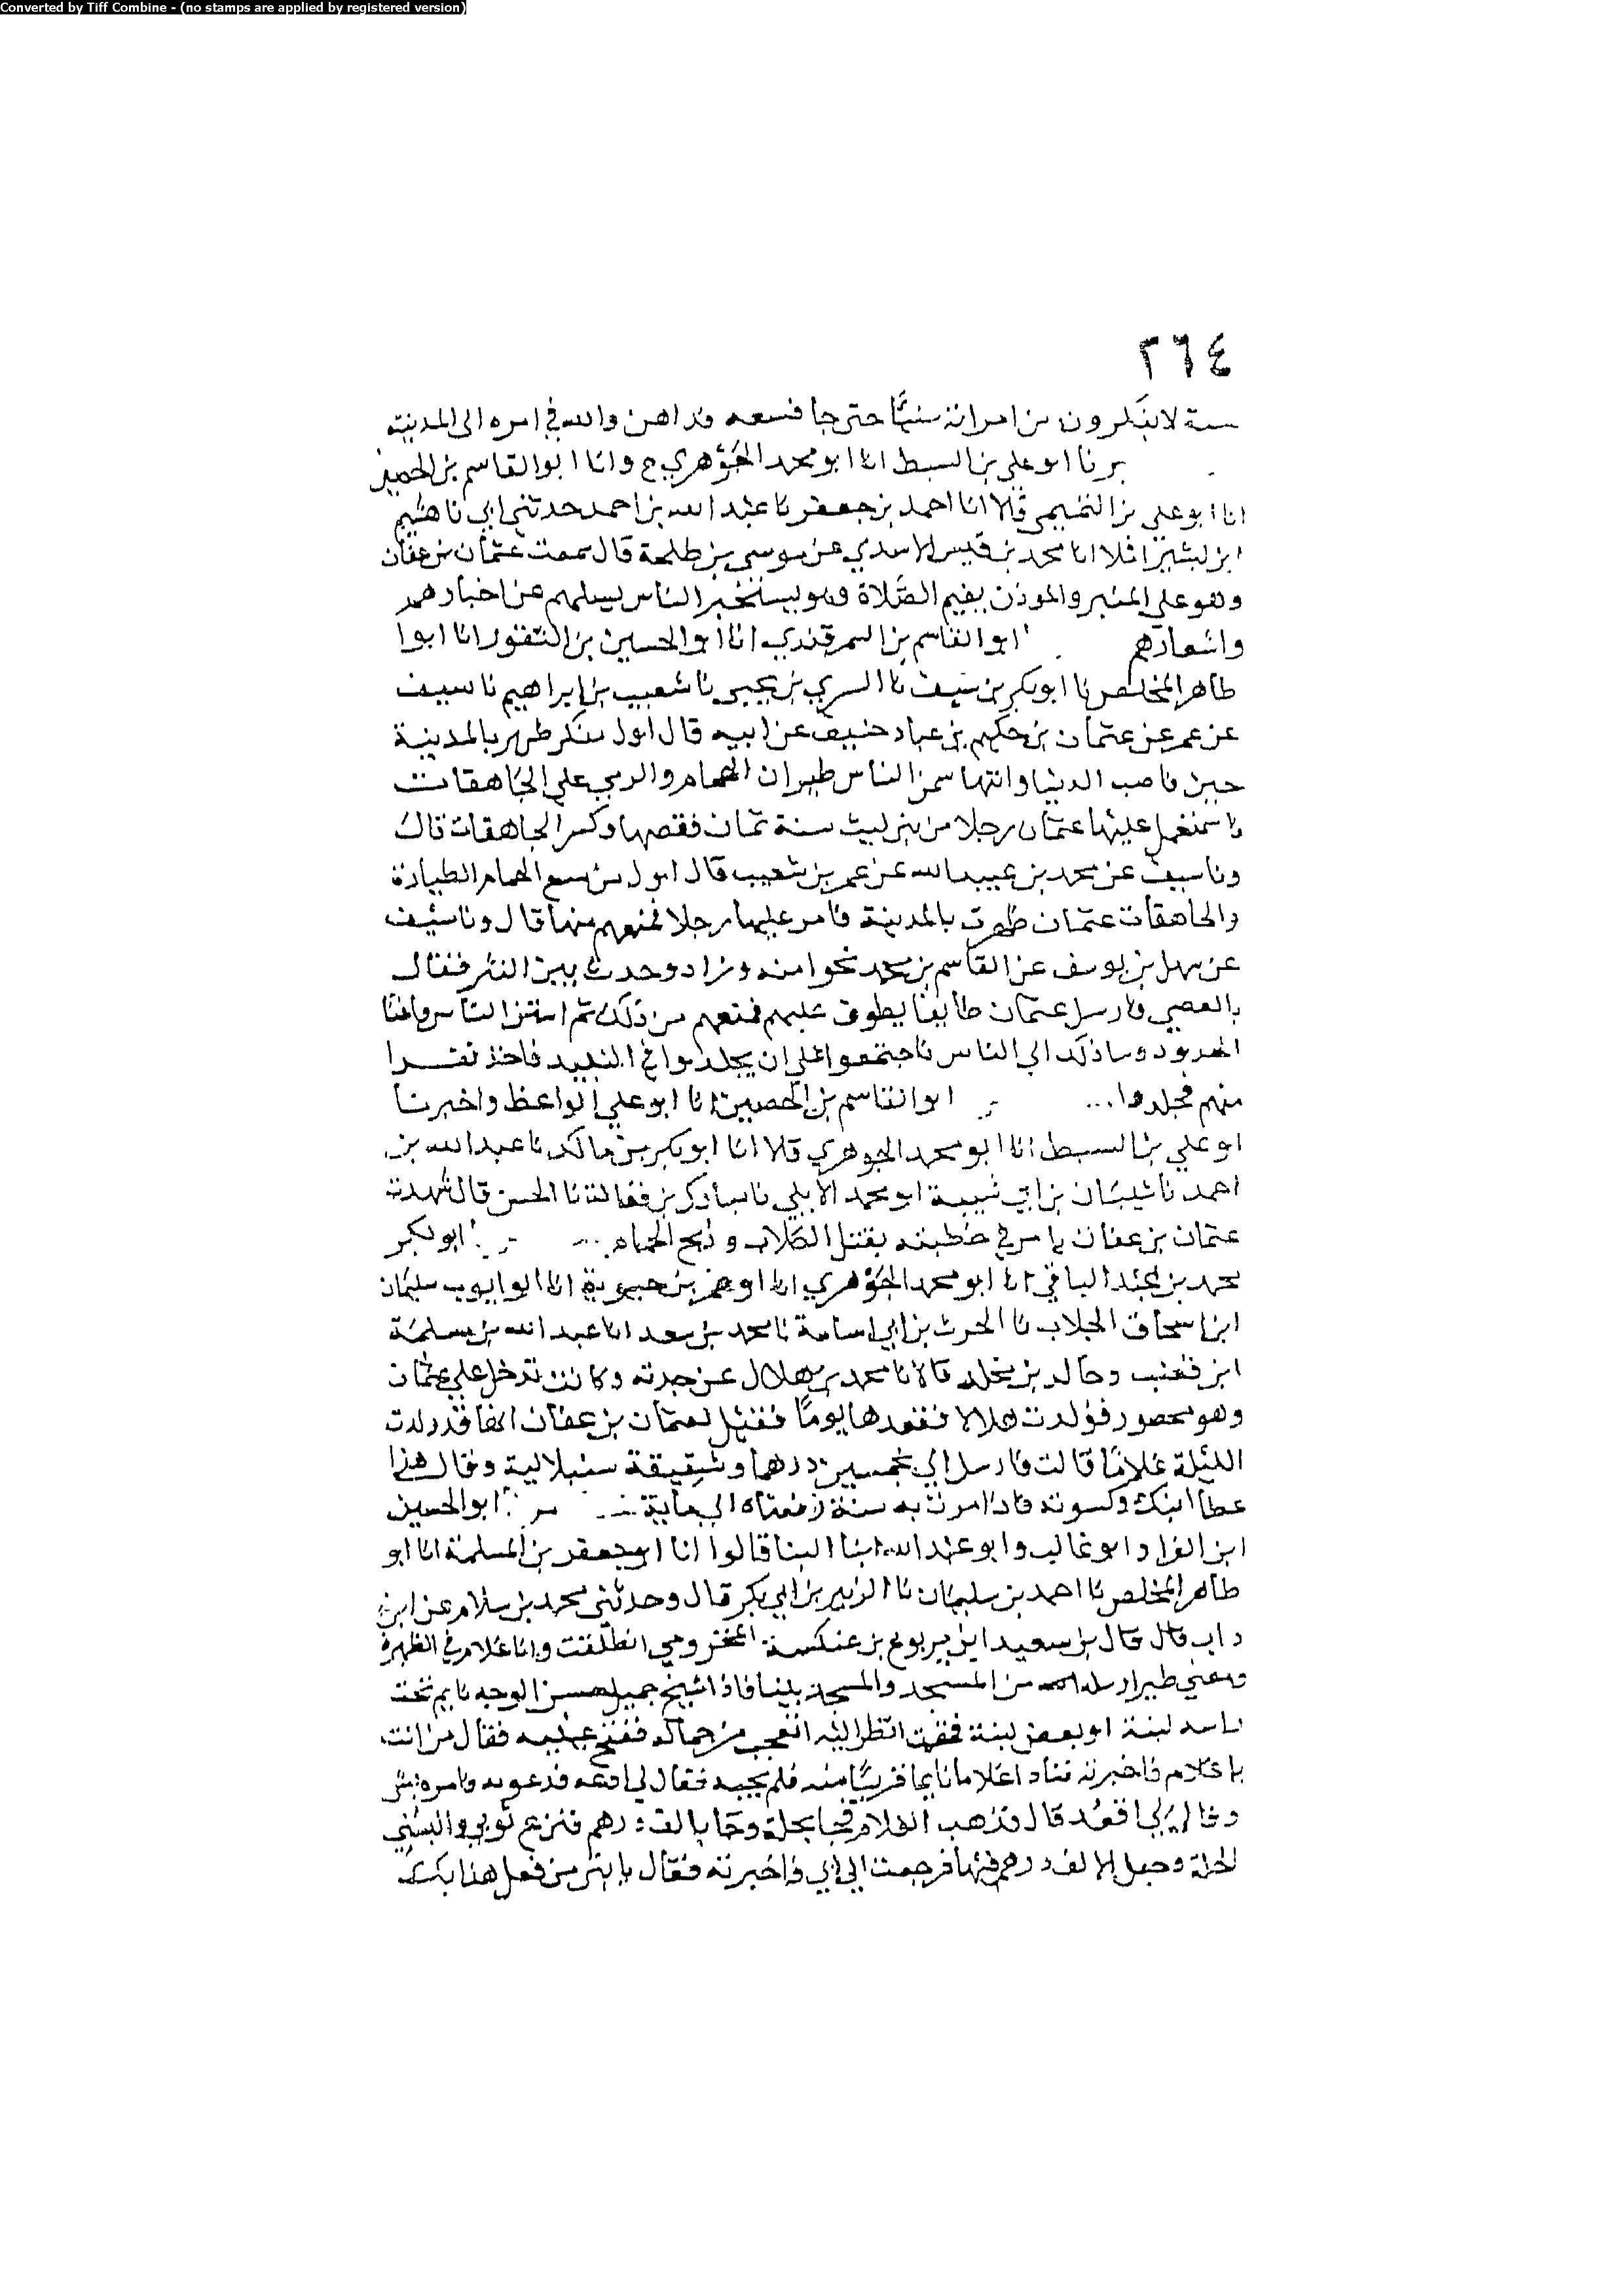 Converted by Tiff Combine - (no stamps are applied by registered version)
٢٦٤
سنة لا ينكرون من امراته شيئا حتى جا فسعه والله في امره الى المدينة
برنا ابو علي بن السبط انا ابو محمد الجوهري ح وانا ابو القاسم بن الحصين
انا ابو علي بن التميمي قالا انا احمد بن جعفر نا عبد الله بن احمد حدثني ابي نا هشيم
ابن بشير انا محمد بن قيس الاسدي عن موسى بن طلحة قال سمعت عثمان بن عفان
وهو على المنبر والموذن يقيم الصلاة وهو يستخبر الناس يسلهم عن اخبارهم
واسعارهم ابو القاسم بن السمرقندي انا ابو الحسين بن النقور انا ابو
طاهر المخلص نا ابو بكر بن سيف نا السري بن يحيى نا شعيب بن ابراهيم نا سيف
عن عمر عن عثمان بن حكيم بن عباد حنيف عن ابيه قال اول منكر ظهر بالمدينة
حين فاضت الدنيا وانتها سمن الناس طيران الحمام والرمي على الجاهقات
فاستعمل عليها عثمان رجلا من بني ليث سنة ثمان فقصها وكسر الجاهقات قال
ونا سيف عن محمد بن عبيد الله عن عمر بن شعيب قال اول من منع الحمام الطيارة
والجاهقات عثمان ظهرت بالمدينة فامر عليها رجلا فمنعهم منها قال ونا سيف
عن سهل بن يوسف عن القاسم بن محمد نحوا منه وزاد وحدث بين الناس قتال
بالعصي فارسل عثمان طايفا يطوف عليهم فمنعهم من ذلك ثم اشتد الناس
الحدود وسا ذلك الي الناس فاجتمعوا على ان يجلدوا في النبيذ فاخذ نفرا
منهم فجلدوا ... ابو القاسم بن الحصين انا ابو علي الواعظ واخبرنا
ابو علي بن السبط انا ابو محمد الجوهري قالا انا ابو بكر بن مالك نا عبد الله بن
احمد نا شيبان بن ابي شيبة ابو محمد الابلي نا مبارك بن فضالة نا الحسن قال شهدت
عثمان بن عفان يامر في خطبته بقتل الكلاب وذبح الحمام ... ابو بكر
محمد بن عبد الباقي انا ابو محمد الجوهري انا ابو عمر بن حيوية انا ابو ايوب سليمان
ابن اسحاق الجلاب نا الحرث بن ابي اسامة نا محمد بن سعد انا عبد الله بن مسلمة
ابن قعنب وخالد بن مخلد قالا نا محمد بن هلال عن جدته وكانت تدخل علي عثمان
وهو محصور فولدت هلالا ففقدها يوما فقيل لعثمان بن عفان انها قد ولدت
الليلة غلاما قالت فارسل الي بخمسين درهما وشقيقة سنبلانية وقال هذا
عطا ابنك وكسوته فاذا مرت به سنة رفعناه الي ماية ... ابو الحسين
ابن الفرا وابو غالب وابو عبد الله ابنا البنا قالوا انا ابو جعفر بن المسلمة انا ابو
طاهر المخلص نا احمد بن سليمان نا الزبير بن ابي بكر قال وحدثني محمد بن سلام عن ابن
داب قال قال بن سعيد ابن يربوع بن عنكسة المخزومي انطلقت وانا غلام في الظهيرة
ومعي طير ارسله من المسجد والمسجد بيننا فاذا شيخ جميل حسن الوجه نايم تحت
راسه لبنة او بعض لبنة فقمت انظر اليه اتعجب من جماله ففتح عينيه فقال من انت
يا غلام فاخبرته فنادا غلاما نايما قريبا منه فلم يجبه فقال لي ادعه فدعوته فامره بشي
وقال لي اقعد قال فذهب الغلام فجا بحلة وجا بالف درهم فنزع ثوبي والبسني
الحلة وجعل الالف درهم فيها فرجعت الي ابي فاخبرته فقال يا بني من فعل هذا بك